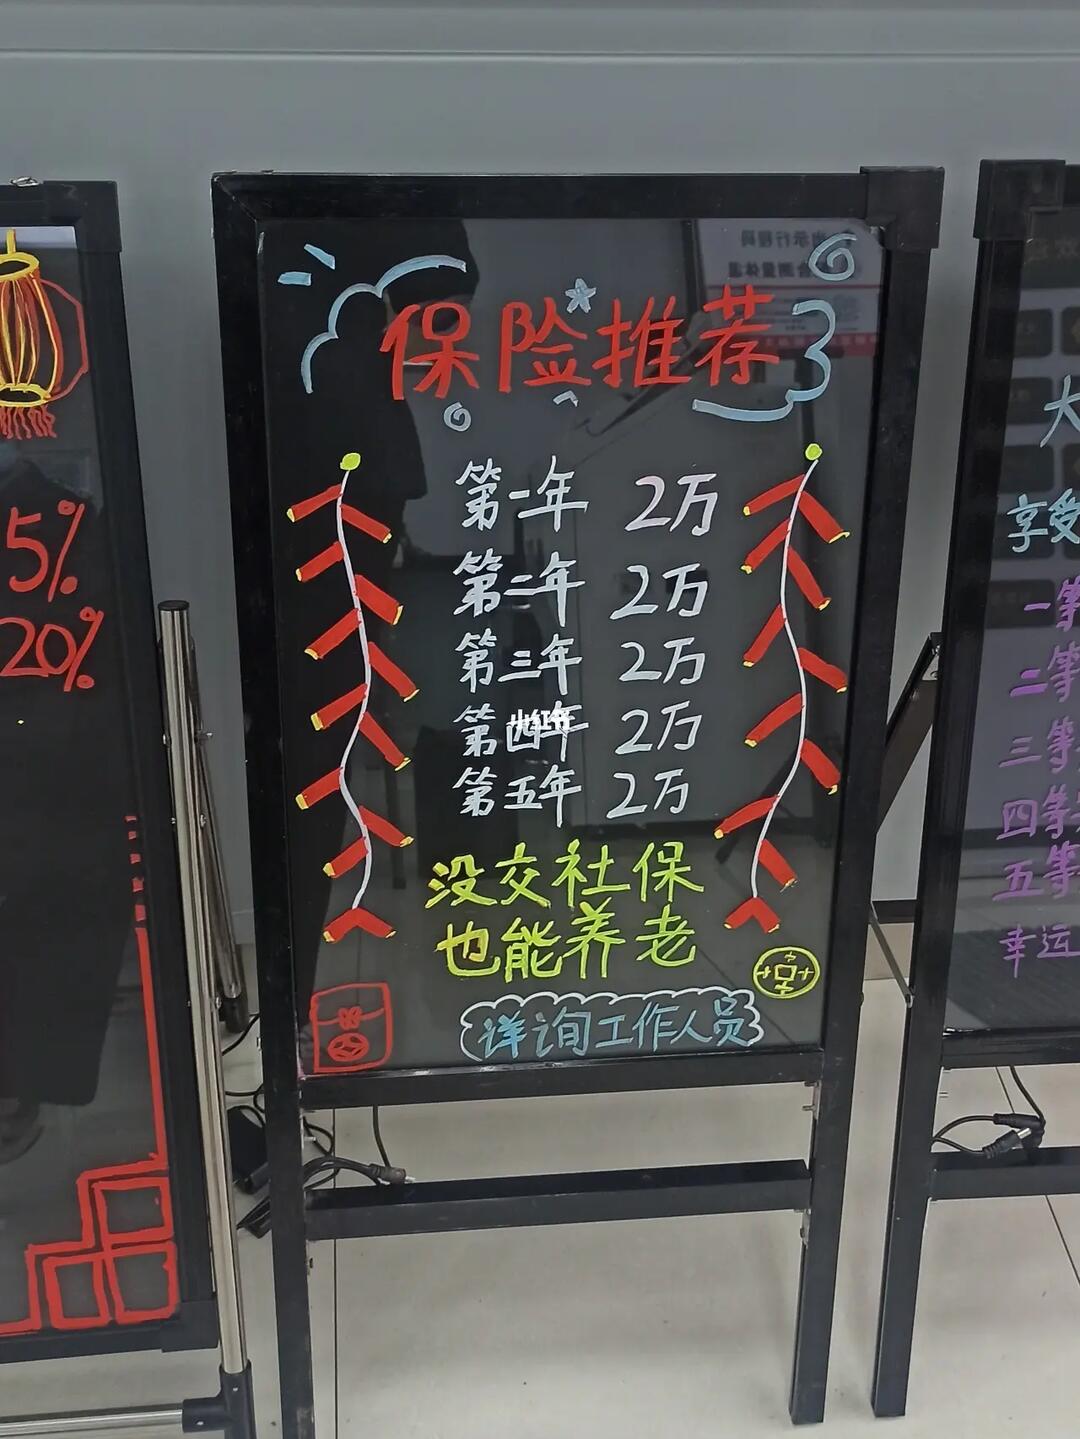 保险推荐
第一年 2万
第二年 2万
第三年 2万
第四年 2万
第五年 2万
没交社保
也能养老
详询工作人员
小红书
5%
20%
大
享受
一等
二等
三等
四等
五等
幸运